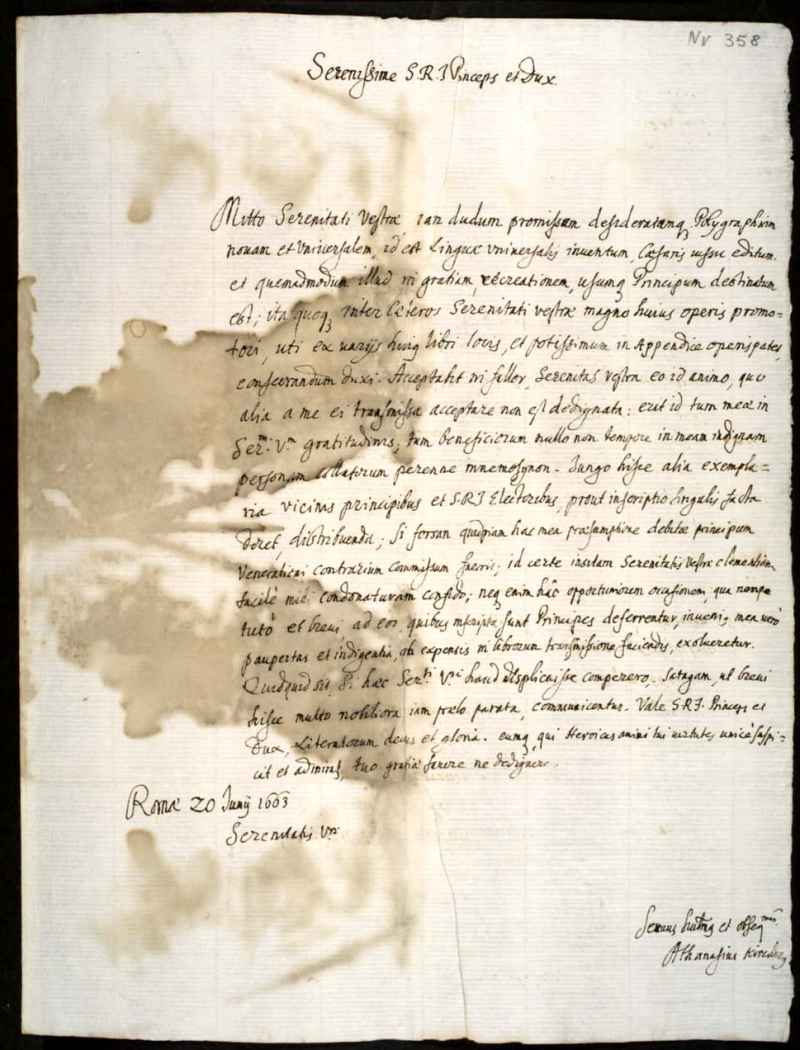 Nr 358
Serenissime S.R.I Princeps et Dux.
Mitto Serenitati Vestræ iam dudum promissam desideratamq; Polygraphiam
nouam et Vniversalem, id est Linguæ vniversalis inuentum, Cæsaris iussu editum.
et quemadmodum illud in gratiam, recreationem, usumq; Principum destinatum
est; ita quoq; inter cæteros Serenitati vestræ magno huius operis promo-
tori, uti ex varijs huiq libri locis, et potissimum in Appendice operis patet,
consecrandum duxi. Acceptabit ni fallor, Serenitas vestra eo id animo, quo
alia a me ei transmissa acceptare non est dedignata: erit id tum meæ in
Ser.m Vm gratitudinis; tum beneficiorum nullo non tempore in meam indignam
personam collatorum perenne mnemosynon. Iungo hisce alia exempla=
ria vicinis principibus et S.R.I Electoribus, prout inscriptio singulis facta
docet, distribuenda; Si forsan quidpiam hac mea præsumptione debitæ principum
Venerationi contrarium commissum fuerit; id certe insitam Serenitatis Vestræ clementiam
facilè mihi condonaturam confido; neq enim hâc opportuniorem occasionem, qua nempe
tutò et breui, ad eos, quibus inscripta sunt Principes deferrentur, inueni; mea verò
paupertas et indigentia, ob expensis in librorum transmissione faciendis, exolueretur.
Quidquid sit, Si hæc Ser.ti V.æ haud displicuisse comperero. Satagam, ut breui
hisce multo nobiliora iam prælo parata, communicentur. Vale S.R.I. Princeps et
Dux, Literatorum decus et gloria. eumq, qui Heroicas animi tui virtutes unicè suspi-
cit et admirat, tuo gratiæ fauore ne dedignere.
Romæ 20 Junij 1663
Serenitatis Væ
Seruus humillimus et obseq.mus
Athanasius Kircherus